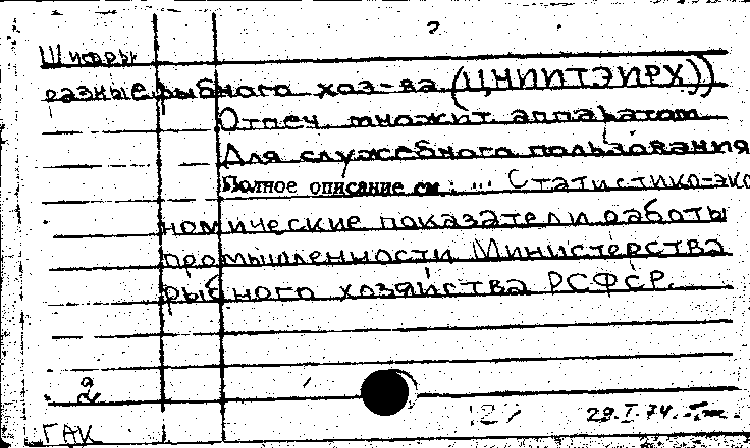 2
Шифры
разные рыбного хоз-ва (ЦНИИТЭИРХ))
Отпеч. множит. аппаратом
Для служебного пользования
Полное описание см.: ... Статистико-эко
номические показатели работы
промышленности Министерства
рыбного хозяйства РСФСР.
2
29.I.74.
ГАК